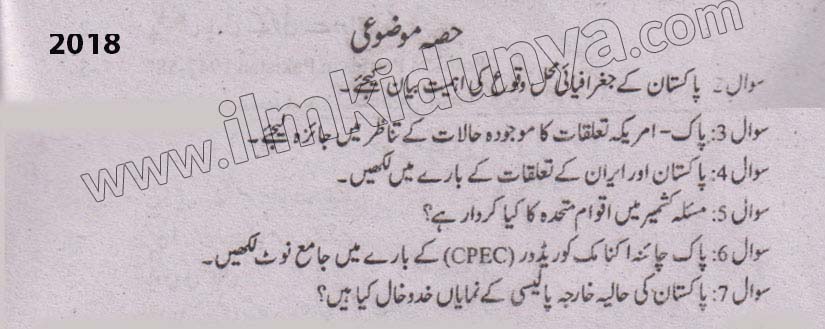 2018
حصہ موضوعی
سوال 2: پاکستان کے جغرافیائی محل وقوع کی اہمیت بیان کیجئے۔
سوال 3: پاک-امریکہ تعلقات کا موجودہ حالات کے تناظر میں جائزہ لیجئے۔
سوال 4: پاکستان اور ایران کے تعلقات کے بارے میں لکھیں۔
سوال 5: مسئلہ کشمیر میں اقوام متحدہ کا کیا کردار ہے؟
سوال 6: پاک چائنہ اکنامک کوریڈور (CPEC) کے بارے میں جامع نوٹ لکھیں۔
سوال 7: پاکستان کی حالیہ خارجہ پالیسی کے نمایاں خدوخال کیا ہیں؟
www.ilmkidunya.com